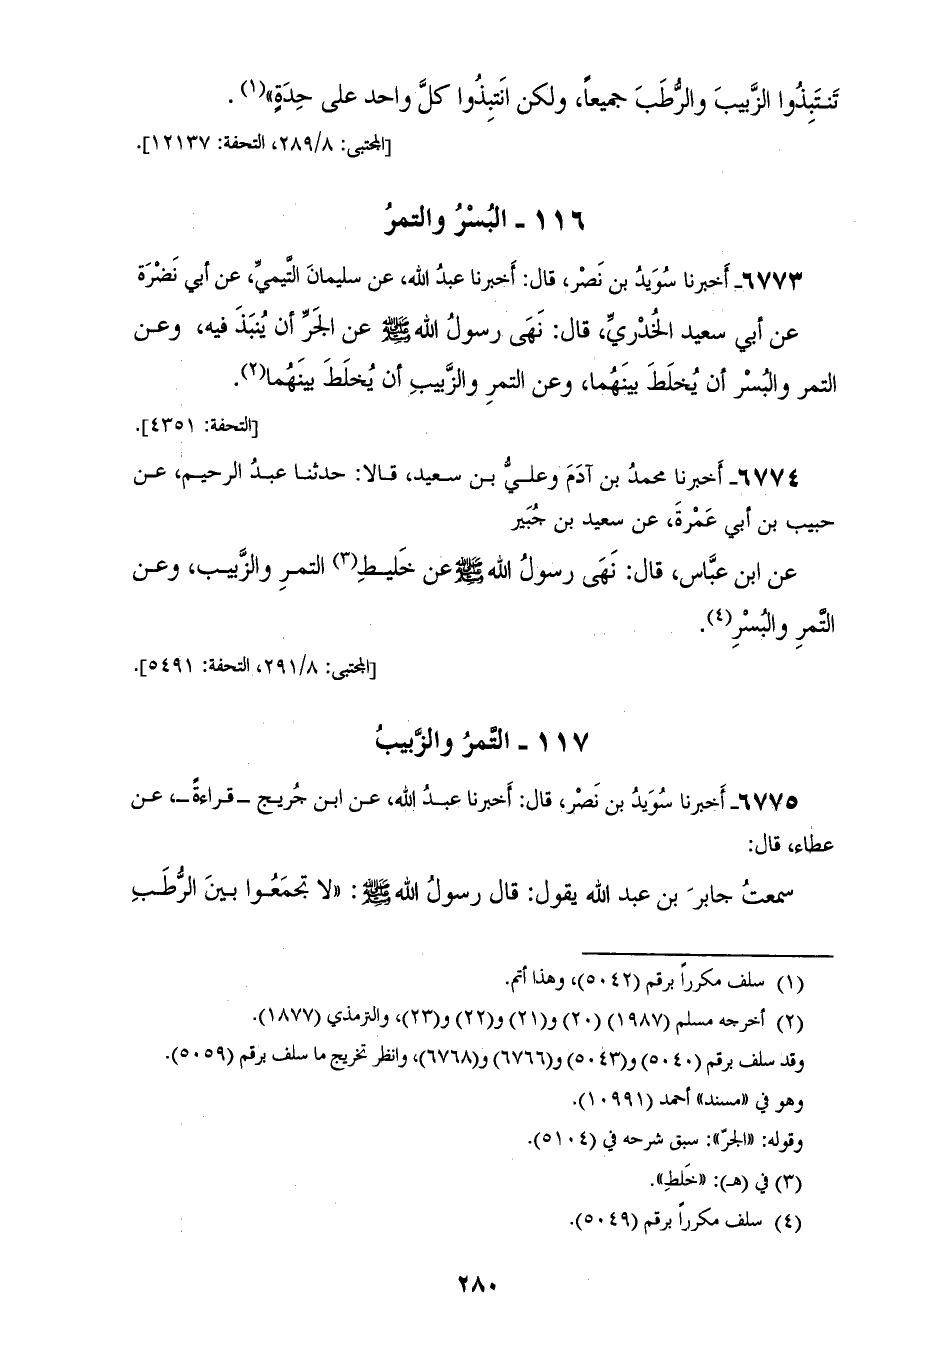 تَنتَبِذُوا الزَّبيبَ والرُّطَبَ جميعاً، ولكن انَتبِذُوا كلَّ واحد على حِدَةٍ»(١) .
[المجتبى: ٢٨٩/٨، التحفة: ١٢١٣٧].
١١٦ - البُسْرُ والتمرُ
٦٧٧٣ـ أَخبرنا سُوَيدُ بن نَصْر، قال: أَخبرنا عبدُ الله، عن سليمانَ التَّيميِّ، عن أبي نَضْرَة
عن أبي سعيد الخُدْريِّ، قال: نَهَى رسولُ الله ﷺ عن الجَرِّ أن يُنبَذَ فيه، وعن
التمر والبُسْر أن يُخلَطَ بينَهُما، وعن التمرِ والزَّبيبِ أن يُخلَطَ بينَهُما(٢).
[التحفة: ٤٣٥١].
٦٧٧٤ـ أَخبرنا محمدُ بن آدَمَ وعليُّ بن سعيد، قالا: حدثنا عبدُ الرحيم، عن
حبيب بن أبي عَمْرةَ، عن سعيد بن جُبَير
عن ابن عبَّاس، قال: نَهَى رسولُ الله ﷺ عن خَليطِ(٣) التمرِ والزَّبيب، وعن
التَّمرِ والبُسْرِ(٤).
[المجتبى: ٢٩١/٨، التحفة: ٥٤٩١].
١١٧ - التَّمرُ والزَّبيبُ
٦٧٧٥ـ أَخبرنا سُوَيدُ بن نَصْر، قال: أَخبرنا عبدُ الله، عن ابن جُريج ـ قراءةً ـ، عن
عطاء، قال:
سمعتُ جابرَ بن عبد الله يقول: قال رسولُ الله ﷺ: «لا تجمَعُوا بينَ الرُّطَبِ
(١) سلف مكرراً برقم (٥٠٤٢)، وهذا أتم.
(٢) أخرجه مسلم (١٩٨٧) (٢٠) و(٢١) و(٢٢) و(٢٣)، والترمذي (١٨٧٧).
وقد سلف برقم (٥٠٤٠) و(٥٠٤٣) و(٦٧٦٦) و(٦٧٦٨)، وانظر تخريج ما سلف برقم (٥٠٥٩).
وهو في «مسند» أحمد (١٠٩٩١).
وقوله: «الجرّ»: سبق شرحه في (٥١٠٤).
(٣) في (هـ): «خَلطِ».
(٤) سلف مكرراً برقم (٥٠٤٩).
٢٨٠